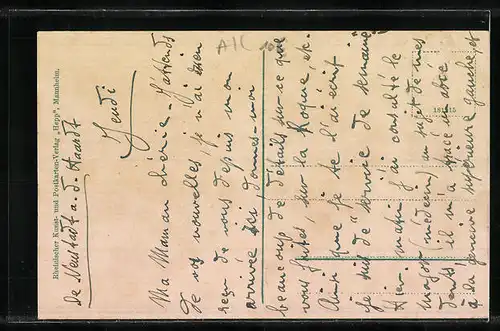 Rheinischer Kunst- und Postkarten-Verlag „Hepp", Mannheim.
de Neustadt a. d. Haardt
Jeudi
Ma Maman chérie – J'attends
de vos nouvelles, je n'ai rien
reçu de vous depuis mon
arrivée ici donnez-moi
beaucoup de détails sur ce que
vous faites, sur la Roque, etc.
Ainsi que je te l'ai écrit
je suis de "service de semaine"
Hier matin j'ai consulté le
major (médecin) au sujet de mes
dents, il m'a trace un abcé
à la gencive supérieure gauche, et